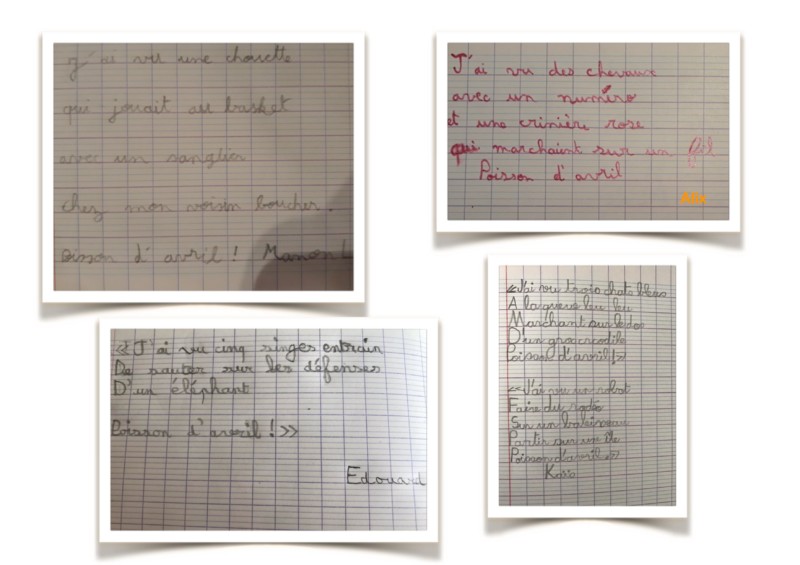 J'ai vu une chouette
qui jouait au basket
avec un sanglier
chez mon voisin boucher.
oisson d'avril ! Manon L
J'ai vu des chevaux
avec un numéro
et une crinière rose
qui marchaient sur un
Poisson d'avril
« J'ai vu cinq singes entrain
De sauter sur les défenses
D'un éléphant
Poisson d'avril ! »
Edouard
« J'ai vu trois chats bleus
A la queue leu leu
Marchant sur le dos
D'un gros crocodile
Poisson d'avril ! »
« J'ai vu un robot
Faire du rodéo
Sur un baleineau
Partir sur une île
Poisson d'avril »